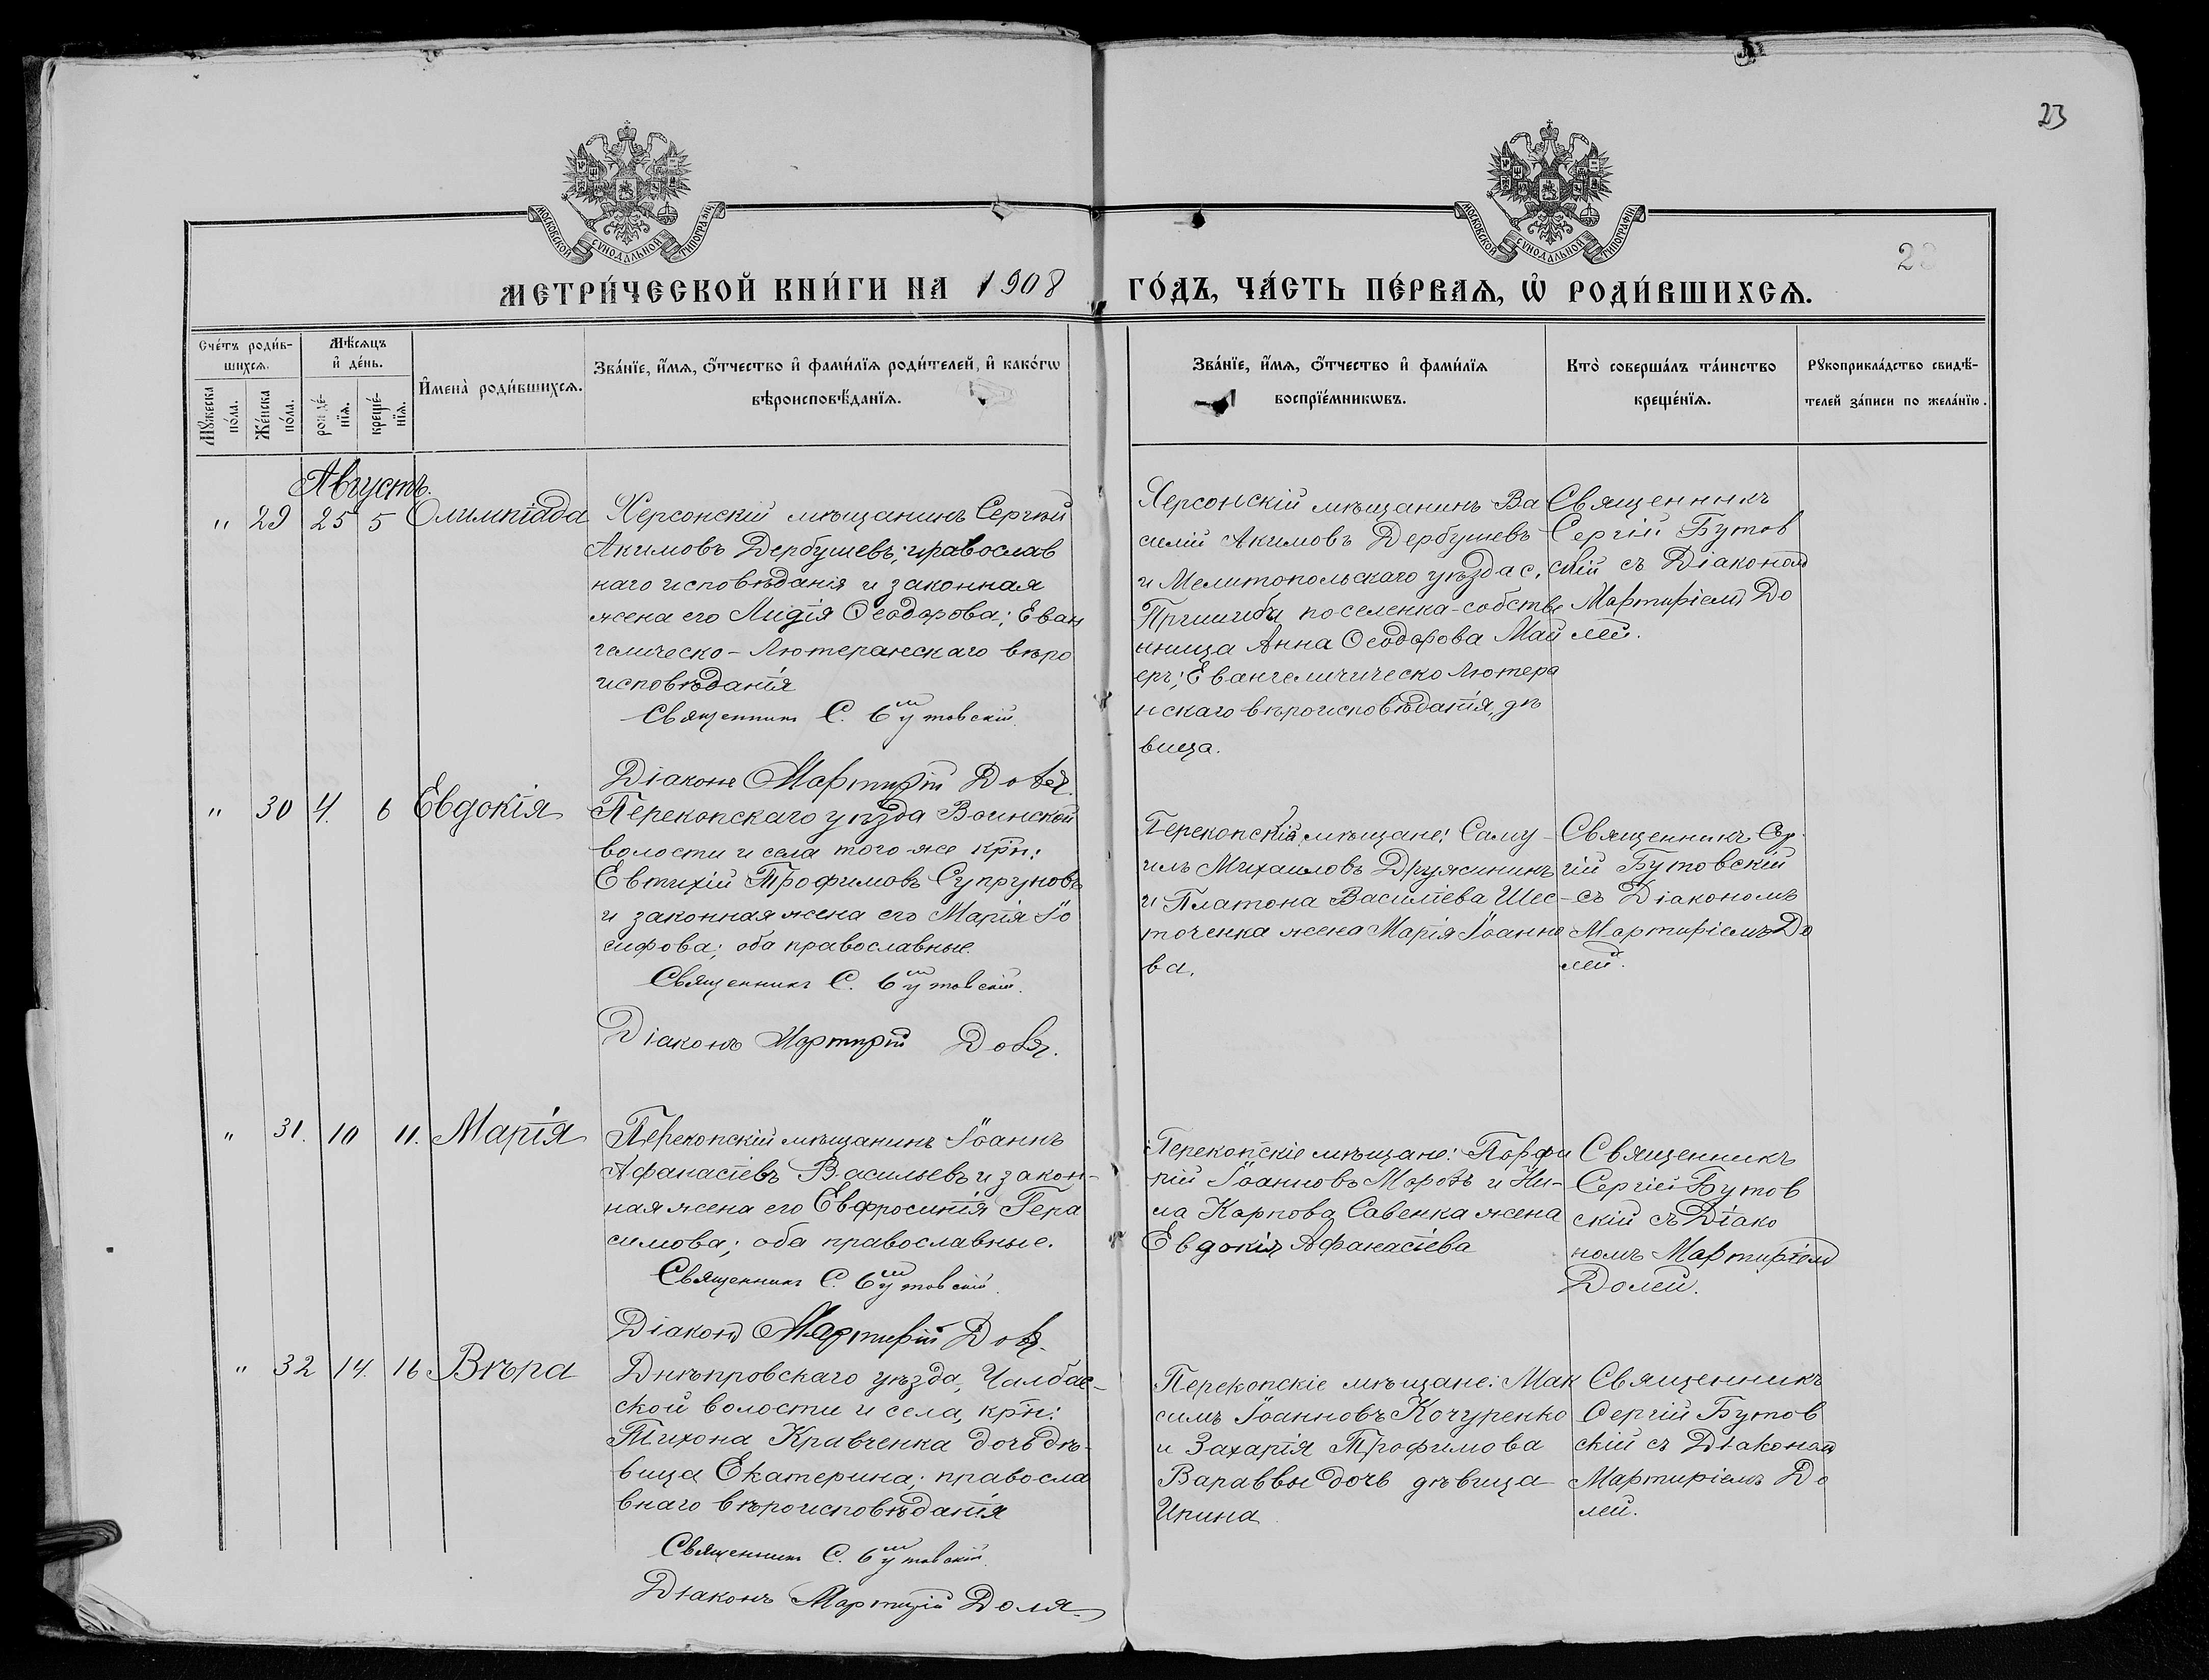 23
МОСКОВСКОЙ СѴНОДАЛЬНОЙ ТИПОГРАФІИ
МОСКОВСКОЙ СѴНОДАЛЬНОЙ ТИПОГРАФІИ
МЕТРИ́ЧЕСКОЙ КНИ́ГИ НА 1908
ГО́ДЪ, ЧА́СТЬ ПЕ́РВАѦ, Ѡ҆ РОДИ́ВШИХСѦ.
Сче́тъ роди́в-
шихсѧ.
Мꙋ́жеска по́ла.
Же́нска по́ла.
Мѣ́сѧцъ
и҆ де́нь.
рожде́-
нїѧ.
креще́-
нїѧ.
И҆мена̀ роди́вшихсѧ.
Зва́нїе, и҆́мѧ, ѻ҆́тчество и҆ фами́лїѧ роди́телей, и҆ како́гѡ
вѣроисповѣ́данїѧ.
Зва́нїе, и҆́мѧ, ѻ҆́тчество и҆ фами́лїѧ
воспрїе́мникѡвъ.
Кто̀ соверша́лъ та́инство
креще́нїѧ.
Рꙋкоприкла́дство свидѣ́-
телей за́писи по жела́нїю.
Августъ.
" 29 25 5 Олимпіада
Херсонскій мѣщанинъ Сергѣй
Акимовъ Дербушевъ; православ
наго исповѣданія и законная
жена его Лидія Ѳеодорова; Еван
гелическо-Лютеранскаго вѣро
исповѣданія
Священникъ С. Бутовскій.
Діаконъ Мартирій Доля.
Херсонскій мѣщанинъ Ва
силій Акимовъ Дербушевъ
и Мелитопольскаго уѣзда с.
Пришиба поселенка-собстве
нница Анна Ѳеодорова Май
еръ; Евангеличическо Лютера
нскаго вѣроисповѣданія, дѣ
вица.
Священникъ
Сергій Бутов
скій съ Діакономъ
Мартиріемъ До
лей.
" 30 4. 6 Евдокія
Перекопскаго уѣзда Воинской
волости и села того-же кр҃н:
Евтихій Трофимовъ Супруновъ
и законная жена его Марія Іо
сифова; оба православные.
Священникъ С. Бутовскій.
Діаконъ Мартирій Доля.
Перекопскіе мѣщане: Саму-
илъ Михаиловъ Дружининъ
и Платона Василіева Шес-
точенка жена Марія Іоанно
ва.
Священникъ Сер
гій Бутовскій
съ Діакономъ
Мартиріемъ До
лей.
" 31. 10 11. Марія
Перекопскій мѣщанинъ Іоаннъ
Афанасіевъ Васильевъ и закон-
ная жена его Евфросинія Гера
симова; оба православные.
Священникъ С. Бутовскій.
Діаконъ Мартирій Доля.
Перекопскіе мѣщане: Порфи
рій Іоанновъ Морозъ и Ни-
ла Карпова Савенка жена
Евдокія Афанасіева
Священникъ
Сергій Бутов
скій съ Діако
номъ Мартиріемъ
Долей.
" 32 14. 16 Вѣра
Днѣпровскаго уѣзда, Чалбас-
ской волости и села, кр҃н:
Тихона Кравченка дочь дѣ-
вица Екатерина; правосла
внаго вѣроисповѣданія
Священникъ С. Бутовскій.
Діаконъ Мартирій Доля.
Перекопскіе мѣщане: Мак
симъ Іоанновъ Кочуренко
и Захарія Трофимова
Вараввы дочь дѣвица
Ирина
Священникъ
Сергій Бутов
скій съ Діакономъ
Мартиріемъ До
лей.